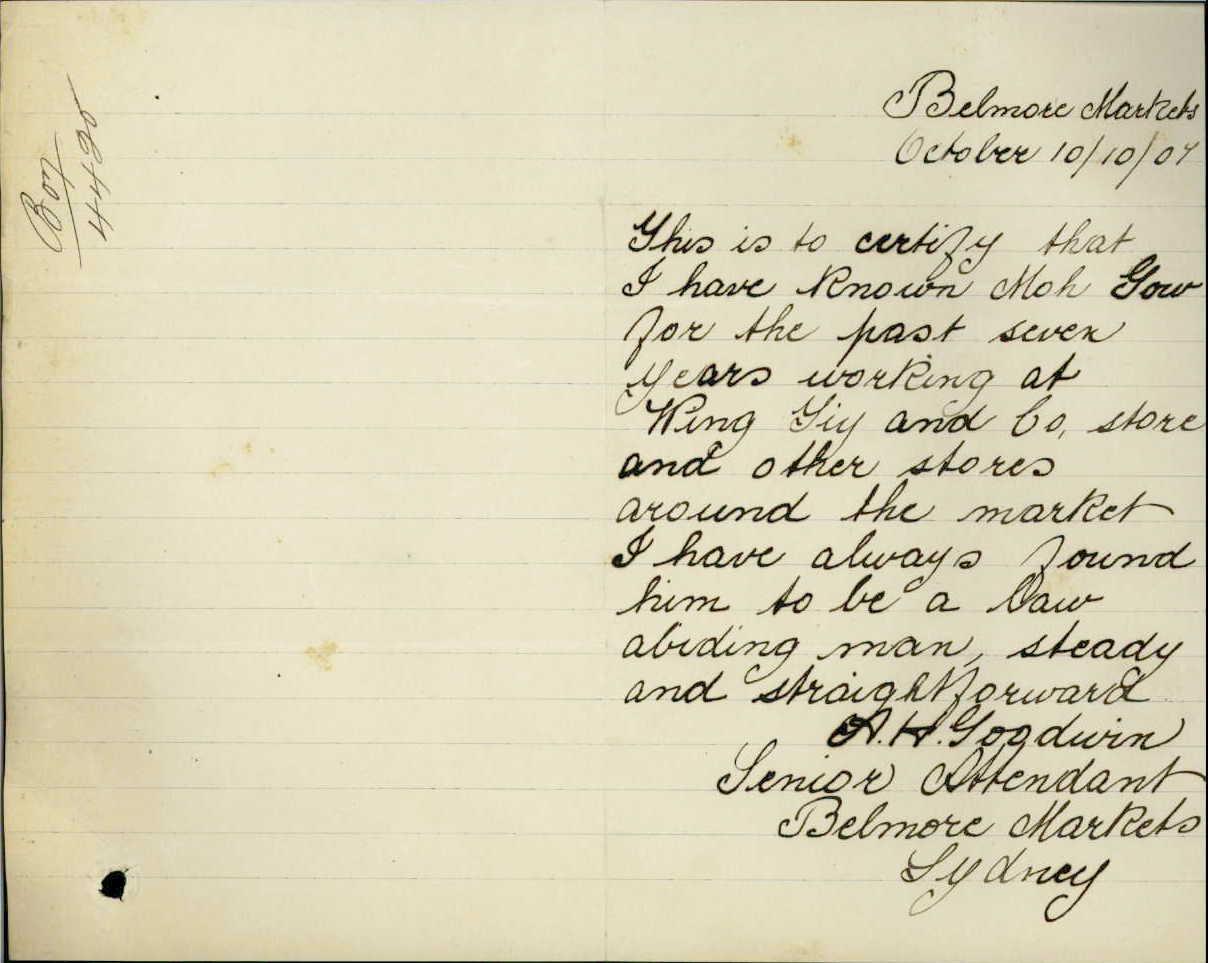 Belmore Markets
October 10/10/07
This is to certify that
I have known Moh Gow
for the past seven
years working at
Wing Yiy and Co, store
and other stores
around the market
I have always found
him to be a law
abiding man, steady
and straightforward
A.H. Goodwin
Senior Attendant
Belmore Markets
Sydney
B07
4420